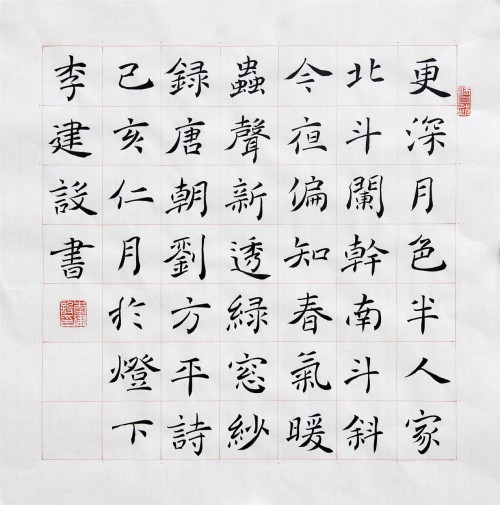 更深月色半人家
北斗闌幹南斗斜
今夜偏知春氣暖
蟲聲新透緑窓紗
録唐朝劉方平詩
己亥仁月於燈下
李建設書